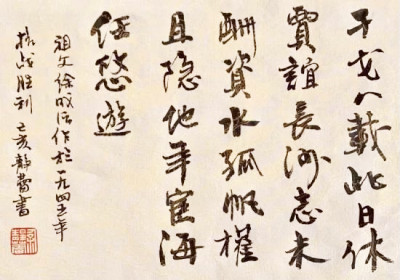 干戈八載此日休
賈誼長沙志未
酬資水孤帆權
且隐他年宦海
任悠遊
祖父徐作於一九四五年
抗战胜利 己亥静書